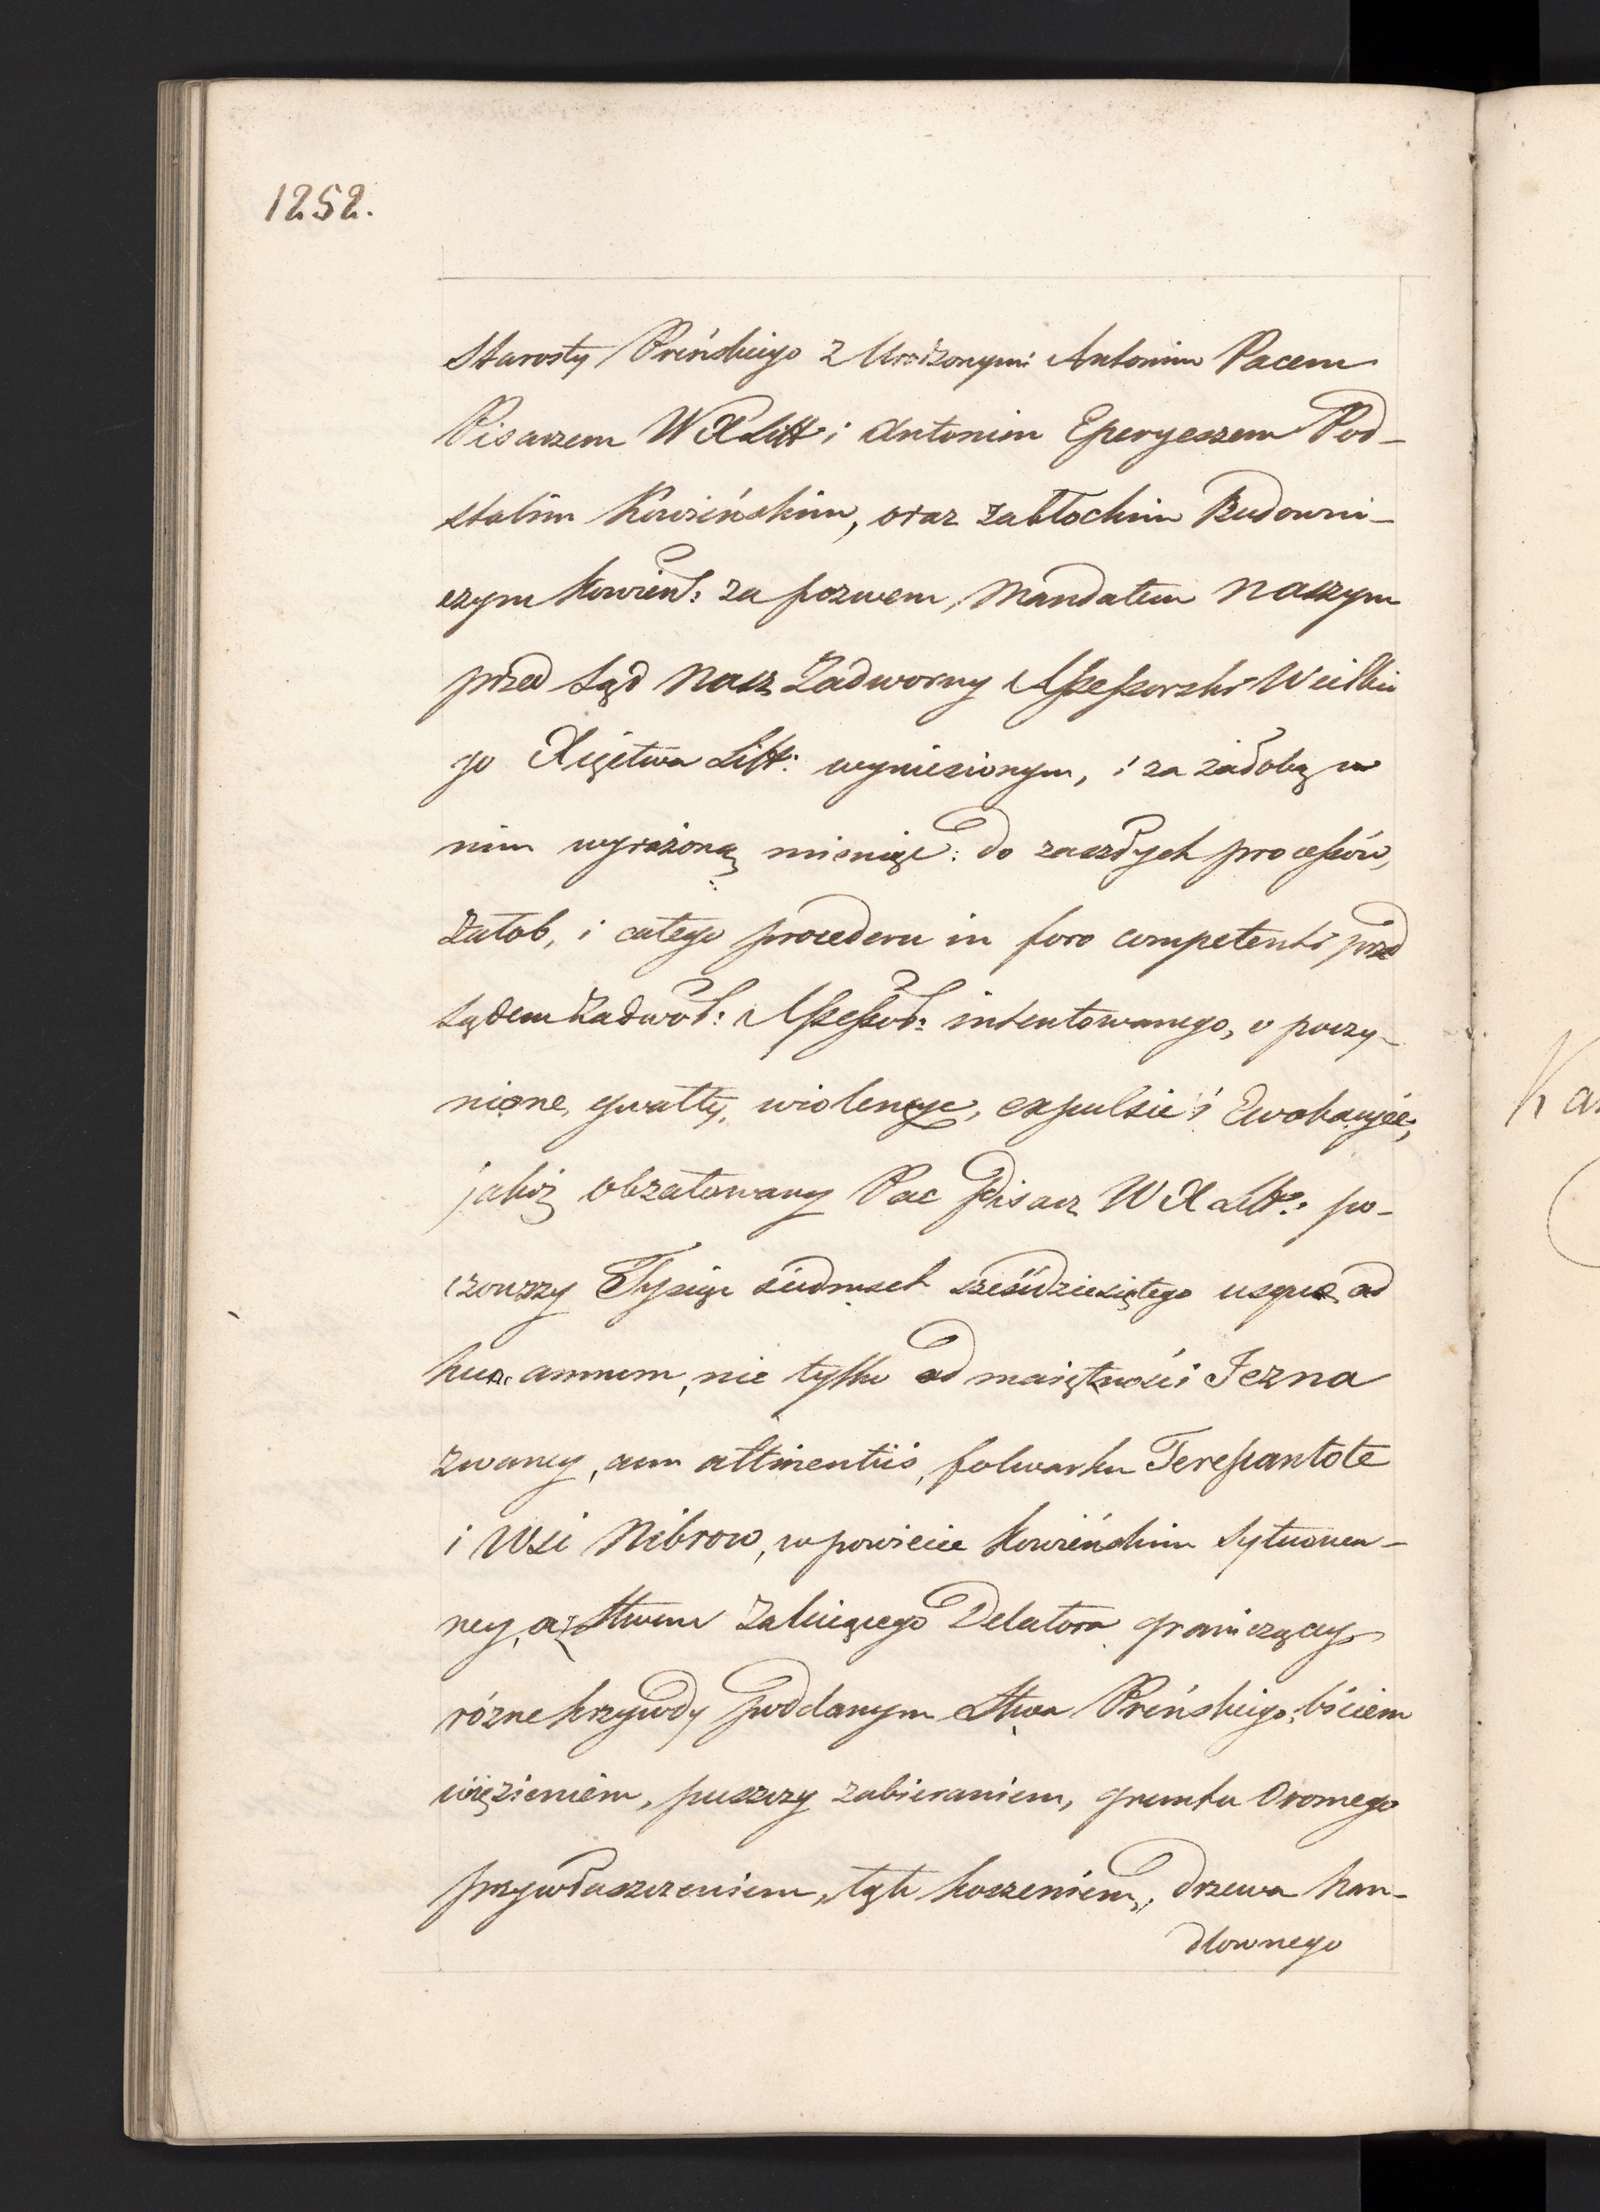 1252.
Starosty Preńskiego z Urodzonymi Antonim Pacem
Pisarzem WXLitt: i Antonim Eperyeszem Pod-
stolim Kowieńskim, oraz Zabłockim Budowni-
czym Kowień: za pozwem, Mandatem Naszym
przed Sąd Nasz Zadworny Assessorski Wielkie
go Xięstwa Litt: wyniesionym, i za żałobą w
nim wyrażoną mieniąc: do zaszłych processów,
Żałob, i całego procederu in foro competenti przed
Sądem Zadwor: Assessor: intentowanego, o poczy-
nione, gwałty, wiolencye, expulsie i Ewakacyje,
jakoż obżałowany Pac Pisarz WXLitt: po-
czowszy Tysiąc siedmset sześćdziesiątego usque ad
hunc annum, nie tylko od maiętności Jezna
zwaney, cum attinentiis, folwarku
i Wsi Nibrow, w powiecie Kowieńskim Sytuowa-
ney, a z Sttwem Żałuiącego Delatora graniczącey
rózne krzywdy poddanym Sttwa Preńskiego, biciem
więzieniem, puszczy zabieraniem, gruntu Oromego
przywłaszczeniem, łąk koszeniem, drzewa han-
dlownego
Ka